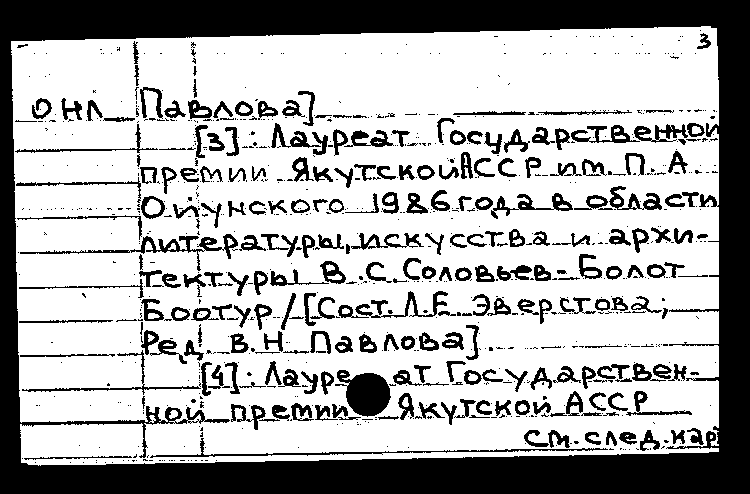 3
ОНЛ Павлова]
[3]: Лауреат Государственной
премии Якутской АССР им. П. А.
Ойунского 1986 года в области
литературы, искусства и архи-
тектуры В. С. Соловьев-Болот
Боотур / [Сост. Л. Е. Эверстова;
Ред. В. Н. Павлова].
[4]: Лауреат Государствен-
ной премии Якутской АССР
см. след. кар